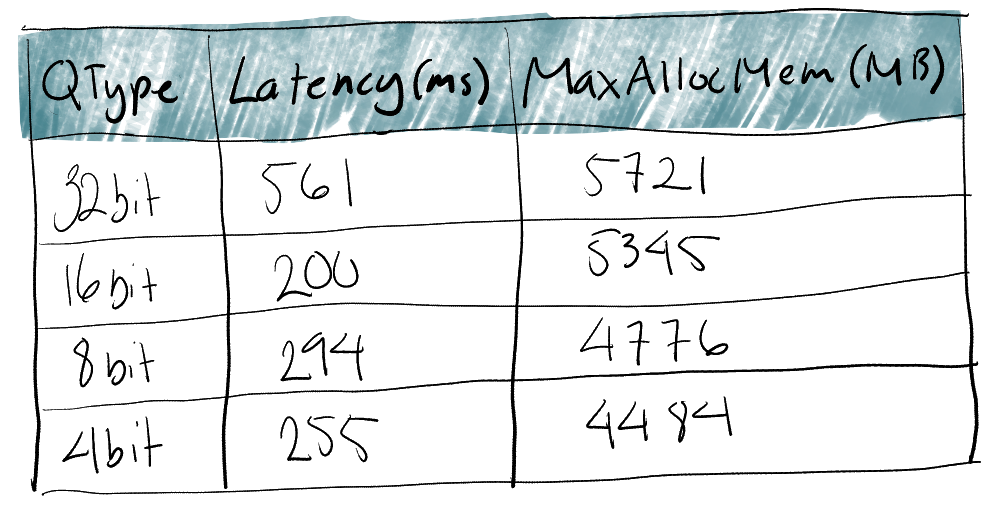 QType Latency(ms) MaxAllocMem(MB)
32bit 561 5721
16bit 200 5345
8bit 294 4776
4bit 255 4484